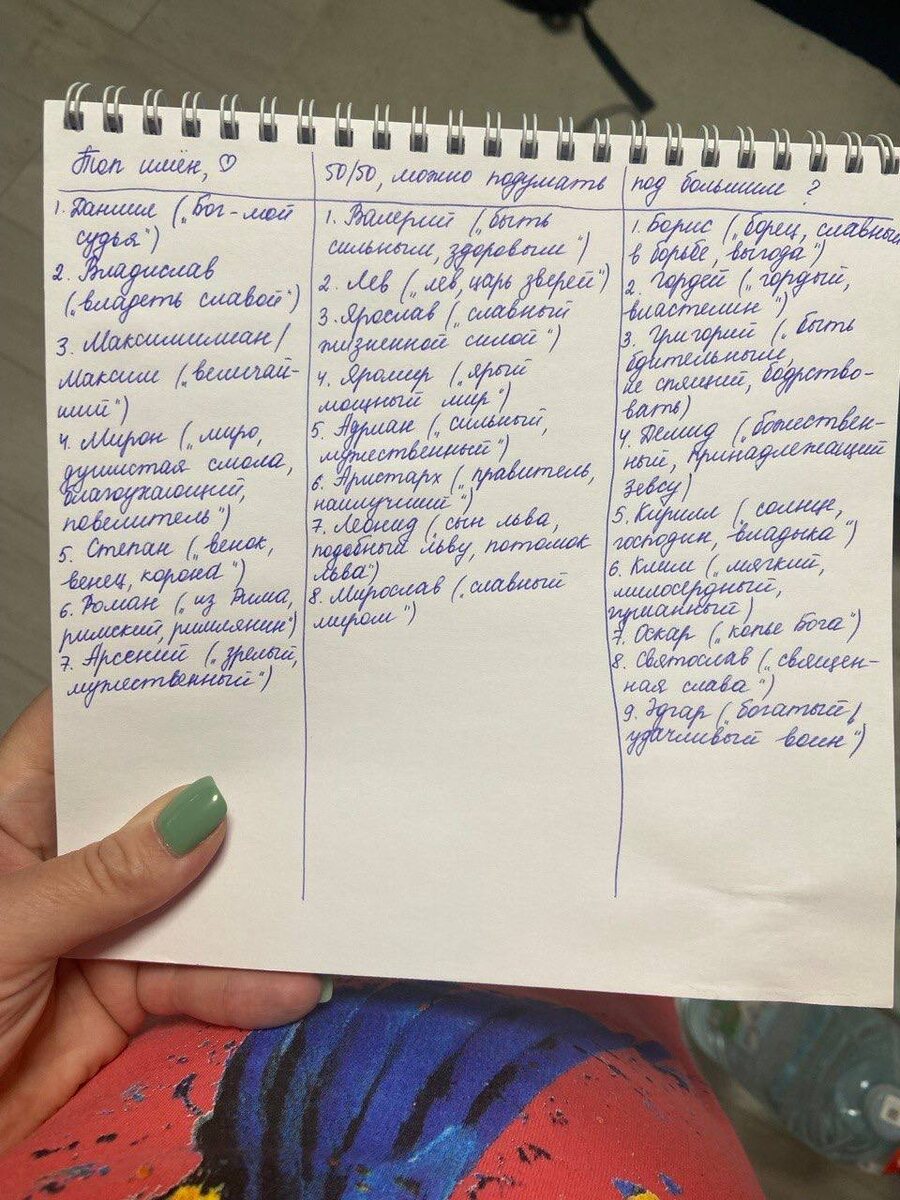 Топ имён, ♡
1. Даниил („Бог-мой
судья“)
2. Владислав
(„владеть славой“)
3. Максимилиан/
Максим („величай-
ший“)
4. Мирон („миро,
душистая смола,
благоухающий,
повелитель“)
5. Степан („венок,
венец, корона“)
6. Роман („из Рима,
римский, римлянин“)
7. Арсений („зрелый,
мужественный“)
50/50, можно подумать
1. Валерий („быть
сильным, здоровым“)
2. Лев („лев, царь зверей“)
3. Ярослав („славный
жизненной силой“)
4. Яромир („ярый
мощный мир“)
5. Адриан („сильный,
мужественный“)
6. Аристарх („правитель,
наилучший“)
7. Леонид („сын льва,
подобный льву, потомок
льва“)
8. Мирослав („славный
миром“)
под большим ?
1. Борис („борец, славный
в борьбе, выгода“)
2. Гордей („гордый,
властелин“)
3. Григорий („быть
бдительным,
не спящий, бодрство-
вать)
4. Демид („божествен-
ный, принадлежащий
Зевсу)
5. Кирилл („солнце,
господин, владыка“)
6. Клим („мягкий,
милосердный,
гуманный)
7. Оскар („копье Бога“)
8. Святослав („священ-
ная слава“)
9. Эдгар („богатый/
удачливый воин“)